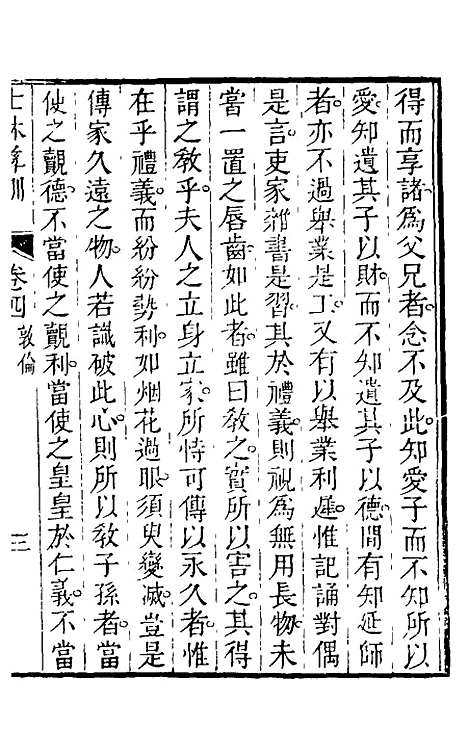 得而享諸爲父兄者念不及此知愛子而不知所以
愛知遺其子以財而不知遺其子以德間有知延師
者亦不過舉業是工又有以舉業利遲惟記誦對偶
是言吏家雜書是習其於禮義則視爲無用長物未
嘗一置之唇齒如此者雖曰敎之實所以害之其得
謂之敎乎夫人之立身立家所恃可傳以永久者惟
在乎禮義而紛紛勢利如烟花過眼須臾變滅豈是
傳家久遠之物人若識破此心則所以敎子孫者當
使之觀德不當使之觀利當使之皇皇於仁義不當
士林彝訓
卷四 敦倫
三